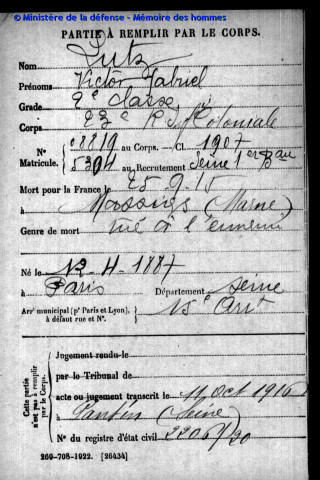 © Ministère de la défense - Mémoire des hommes
PARTIE À REMPLIR PAR LE CORPS.
Nom Lutz
Prénoms Victor Gabriel
Grade 2e classe
Corps 23e R. Inf Coloniale
N° 08819 au Corps. — Cl. 1907
Matricule. 5304 au Recrutement Seine 1er Bau
Mort pour la France le 25-9-15
à Massiges (Marne)
Genre de mort tué à l'ennemi
Né le 12-4-1887
à Paris Département Seine
Arrt municipal (pr Paris et Lyon), à défaut rue et N°. 15e Arrt
Cette partie n'est pas à remplir par le Corps.
Jugement rendu le
par le Tribunal de
acte ou jugement transcrit le 11 Oct 1916
à Pantin (Seine)
N° du registre d'état civil 2206/20
269-708-1922. [26434]